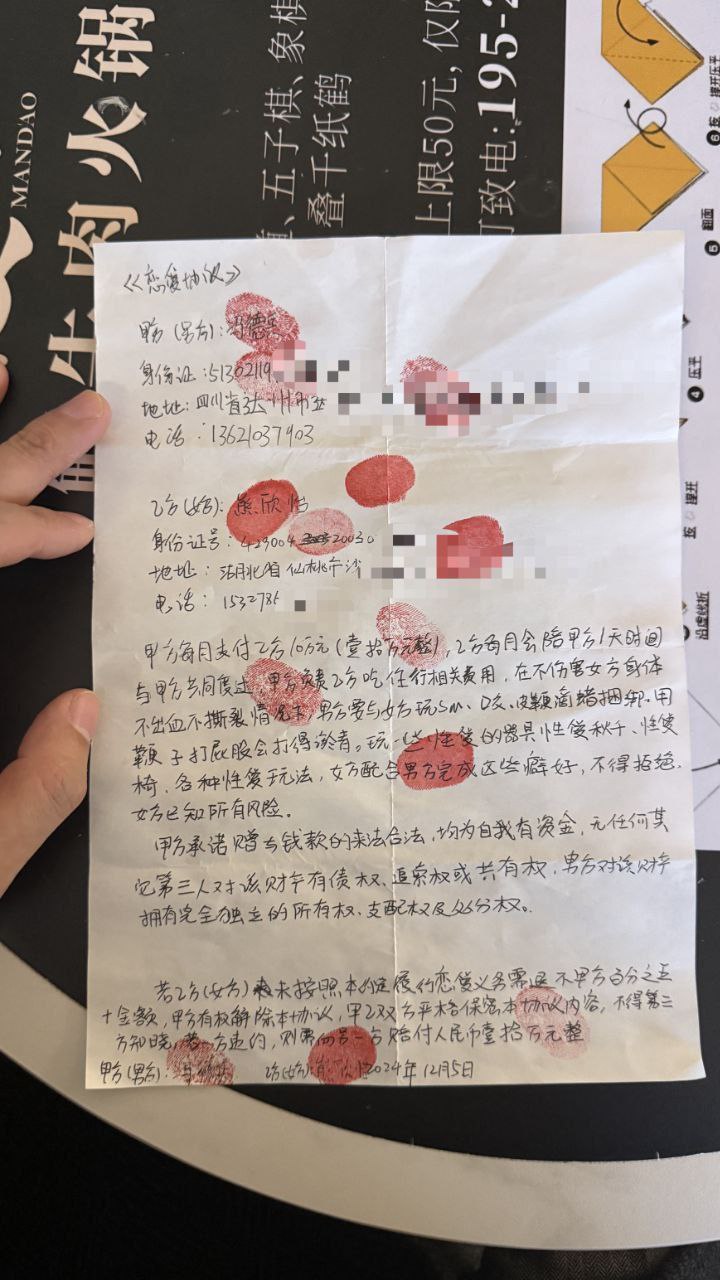 MANDAO
鲜牛肉火锅
、五子棋、象棋
叠千纸鹤
上限50元,仅限
可致电:195-2
《恋爱协议》
甲方(男方):冯德兵
身份证:51302119
地址:四川省达州市
电话:13621037903
乙方(女方):熊欣怡
身份证号:429004 20030
地址:湖北省仙桃市沙
电话:1532786
甲方每月支付乙方10万元(壹拾万元整),乙方每月会陪甲方1天时间
与甲方共同度过,甲方负责乙方吃住行相关费用,在不伤害女方身体
不出血不撕裂情况下,男方要与女方玩Sm、口交、皮鞭滴蜡捆绑.用
鞭子打屁股会打得淤青。玩一些性爱的器具性爱秋千、性爱
椅、各种性爱玩法,女方配合男方完成这些癖好,不得拒绝.
女方已知所有风险。
甲方承诺赠与钱款的来法合法,均为自我有资金,无任何其
它第三人对该财产有债权、追索权或共有权,男方对该财产
拥有完全独立的所有权、支配权及处分权。
若乙方(女方)未按照本约定履行恋爱义务需退还甲方百分之五
十金额,甲方有权解除本协议,甲乙双方严格保密本协议内容,不得第三
方知晓,若一方违约,则需向另一方赔付人民币壹拾万元整
甲方(男方): 乙方(女方): 2024年12月5日
⑥ 拨开压平
⑤ 翻面
④ 压平
沿虚线折